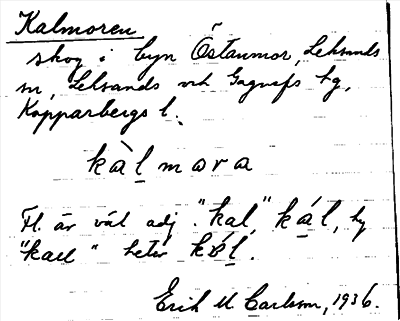 Kalmoren
skog i byn Östanmor, Leksands
sn, Leksands och Gagnefs tg,
Kopparbergs l.
kàl mara
Fl. är väl adj. "kal" kál, ty
"kall" heter
Erik M Carlsson, 1936.